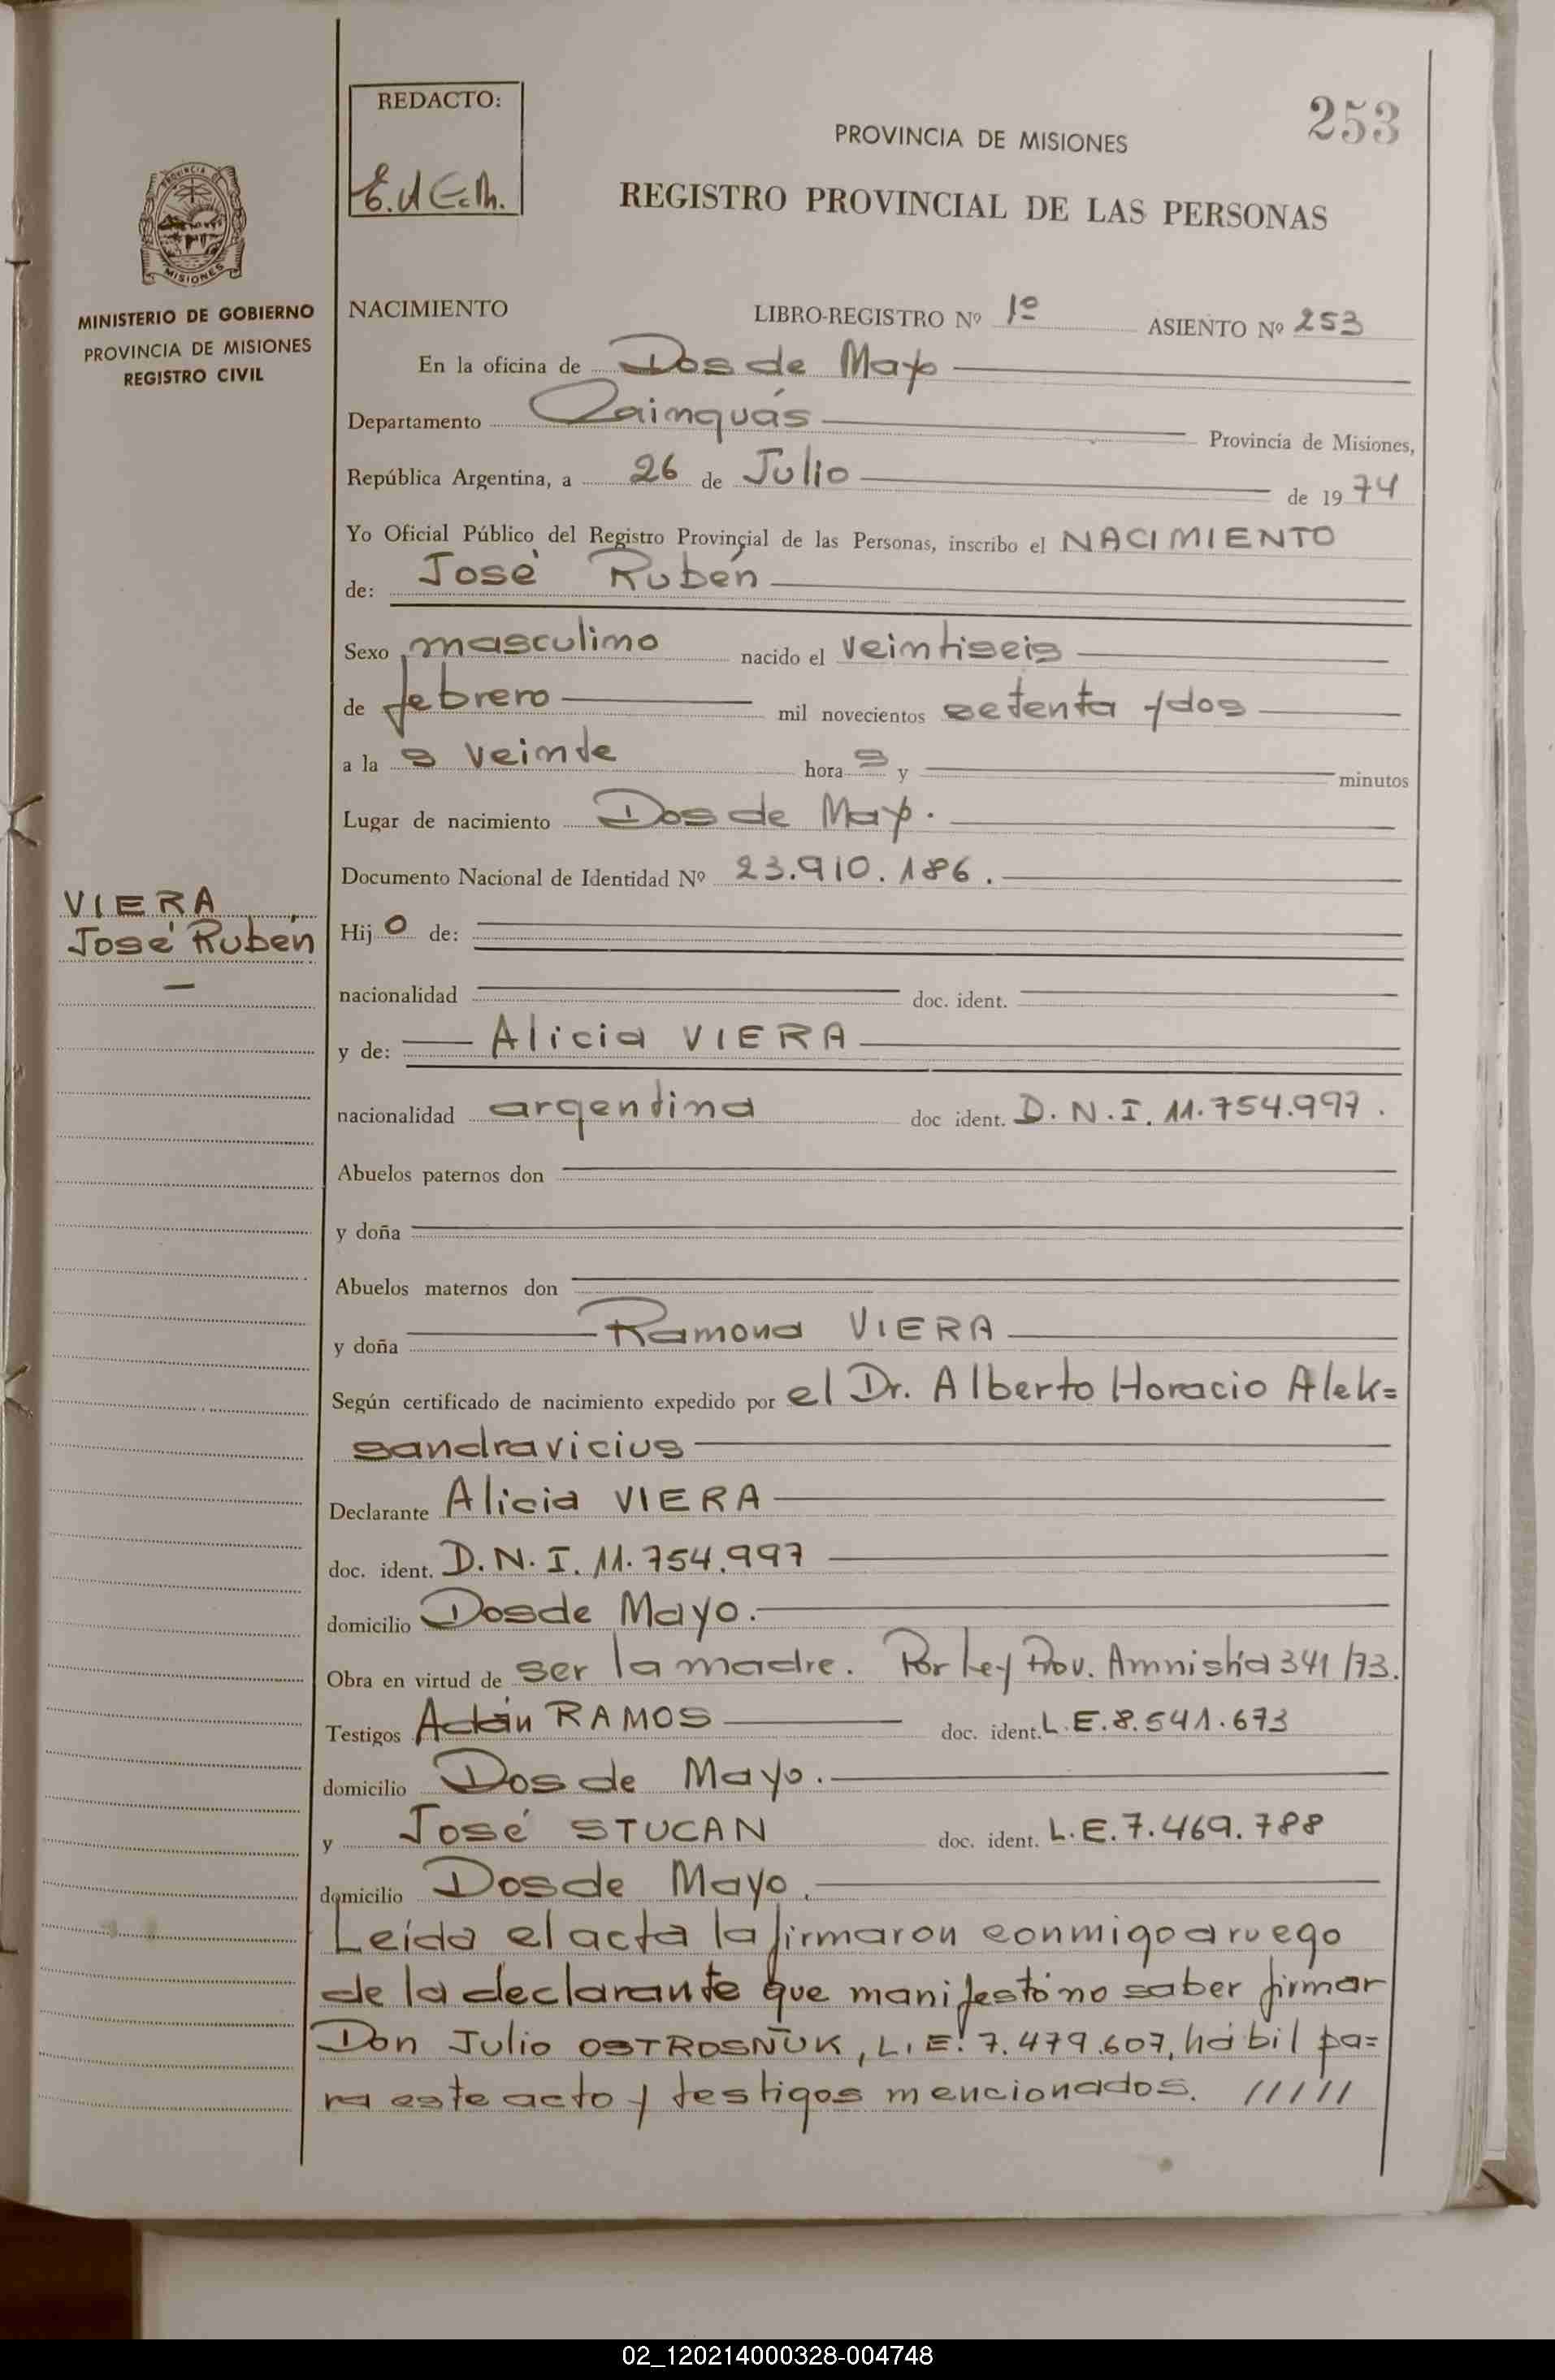 253
REDACTO:
PROVINCIA DE MISIONES
REGISTRO PROVINCIAL DE LAS PERSONAS
PROVINCIA DE
MISIONES
MINISTERIO DE GOBIERNO
PROVINCIA DE MISIONES
REGISTRO CIVIL
NACIMIENTO LIBRO-REGISTRO Nº 1º ASIENTO Nº 253
En la oficina de Dos de Mayo
Departamento Cainguás Provincia de Misiones,
República Argentina, a 26 de Julio de 1974
Yo Oficial Público del Registro Provincial de las Personas, inscribo el NACIMIENTO
de: José Rubén
Sexo masculino nacido el veintiseis
de febrero mil novecientos setenta y dos
a la s veinte hora s y minutos
Lugar de nacimiento Dos de Mayo.
Documento Nacional de Identidad Nº 23.910.186.
VIERA
José Rubén
Hij o de:
nacionalidad doc. ident.
y de: Alicia VIERA
nacionalidad argentina doc ident. D.N.I. 11.754.997.
Abuelos paternos don
y doña
Abuelos maternos don
y doña Ramona VIERA
Según certificado de nacimiento expedido por el Dr. Alberto Horacio Alek=
sandravicius
Declarante Alicia VIERA
doc. ident. D.N.I. 11.754.997
domicilio Dos de Mayo.
Obra en virtud de ser la madre. Por Ley Prov. Amnistía 341/73.
Testigos Adán RAMOS doc. ident. L.E. 8.541.673
domicilio Dos de Mayo.
y José STUCAN doc. ident. L.E. 7.469.788
domicilio Dos de Mayo.
Leída el acta la firmaron conmigo a ruego
de la declarante que manifestó no saber firmar
Don Julio OSTROSÑUK, L.E. 7.479.607, hábil pa=
ra este acto y testigos mencionados. /////
02_120214000328-004748